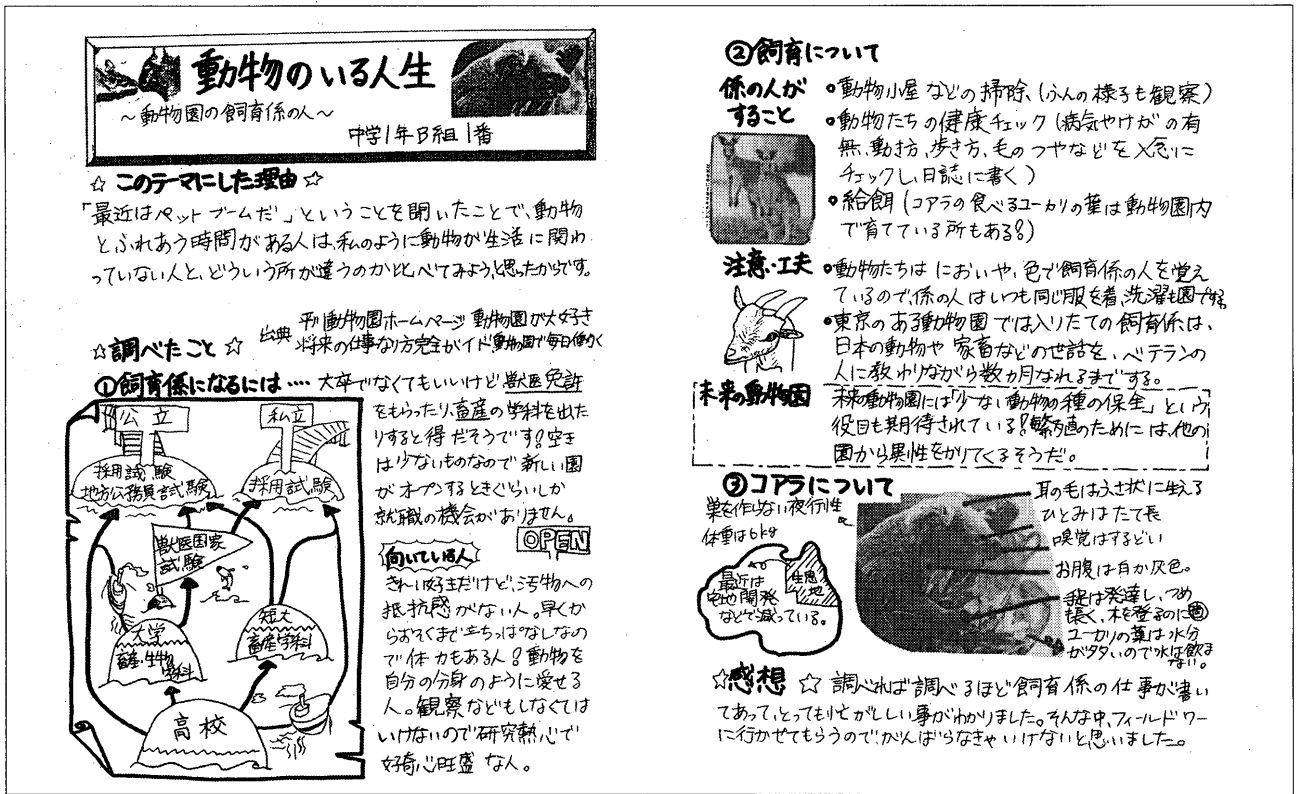 動物のいる人生
～動物園の飼育係の人～
中学1年B組1番
☆このテーマにした理由☆
「最近はペットブームだ」ということを聞いたことで、動物
とふれあう時間がある人は、私のように動物が生活に関わ
っていない人と、どういう所が違うのか比べてみようと思ったからです。
☆調べたこと☆
出典 動物園ホームページ 動物園が大好き
将来の仕事なり方完全ガイド 動物園で毎日働く
①飼育係になるには‥‥大卒でなくてもいいけど獣医免許
をもらったり、畜産の学科を出た
りすると得だそうです?空き
は少ないものなので新しい園
がオープンするときぐらいしか
就職の機会がありません。
OPEN
公立
私立
採用試験
地方公務員試験
採用試験
獣医国家
試験
大学
畜産・生物
学科
短大
畜産学科
高校
向いている人
きれい好きだけど、汚物への
抵抗感がない人。早くか
らおそくまで立ちっぱなしなの
で体力もある人?動物を
自分の分身のように愛せる
人。観察などもしなくては
いけないので研究熱心で
好奇心旺盛な人。
②飼育について
係の人が
すること
•動物小屋などの掃除、(ふんの様子も観察)
•動物たちの健康チェック(病気やけがの有
無、動き方、歩き方、毛のつやなどを入念に
チェックし、日誌に書く)
•給餌(コアラの食べるユーカリの葉は動物園内
で育てている所もある?)
注意・工夫
•動物たちはにおいや、色で飼育係の人を覚え
ているので、係の人はいつも同じ服を着、洗濯も園でする
•東京のある動物園では入りたての飼育係は、
日本の動物や家畜などの世話を、ベテランの
人に教わりながら数カ月なれるまでする。
未来の動物園
未来の動物園には「少ない動物の種の保全」という
役目も期待されている?繁殖のためには、他の
園から異性をかりてくるそうだ。
③コアラについて
巣を作らない夜行性
体重は6kg
最近は
宅地開発
などで減っている。
生息
地
耳の毛はふさ状に生える
ひとみはたて長
嗅覚はするどい
お腹は白か灰色。
手足は発達し、つめ
も長く、木を登るのに
ユーカリの葉は水分
が多いので水は飲ま
ない。
☆感想☆ 調べれば調べるほど飼育係の仕事が書い
てあって、とっても忙がしい事がわかりました。そんな中、フィールドワー
に行かせてもらうので、がんばらなきゃいけないと思いました。